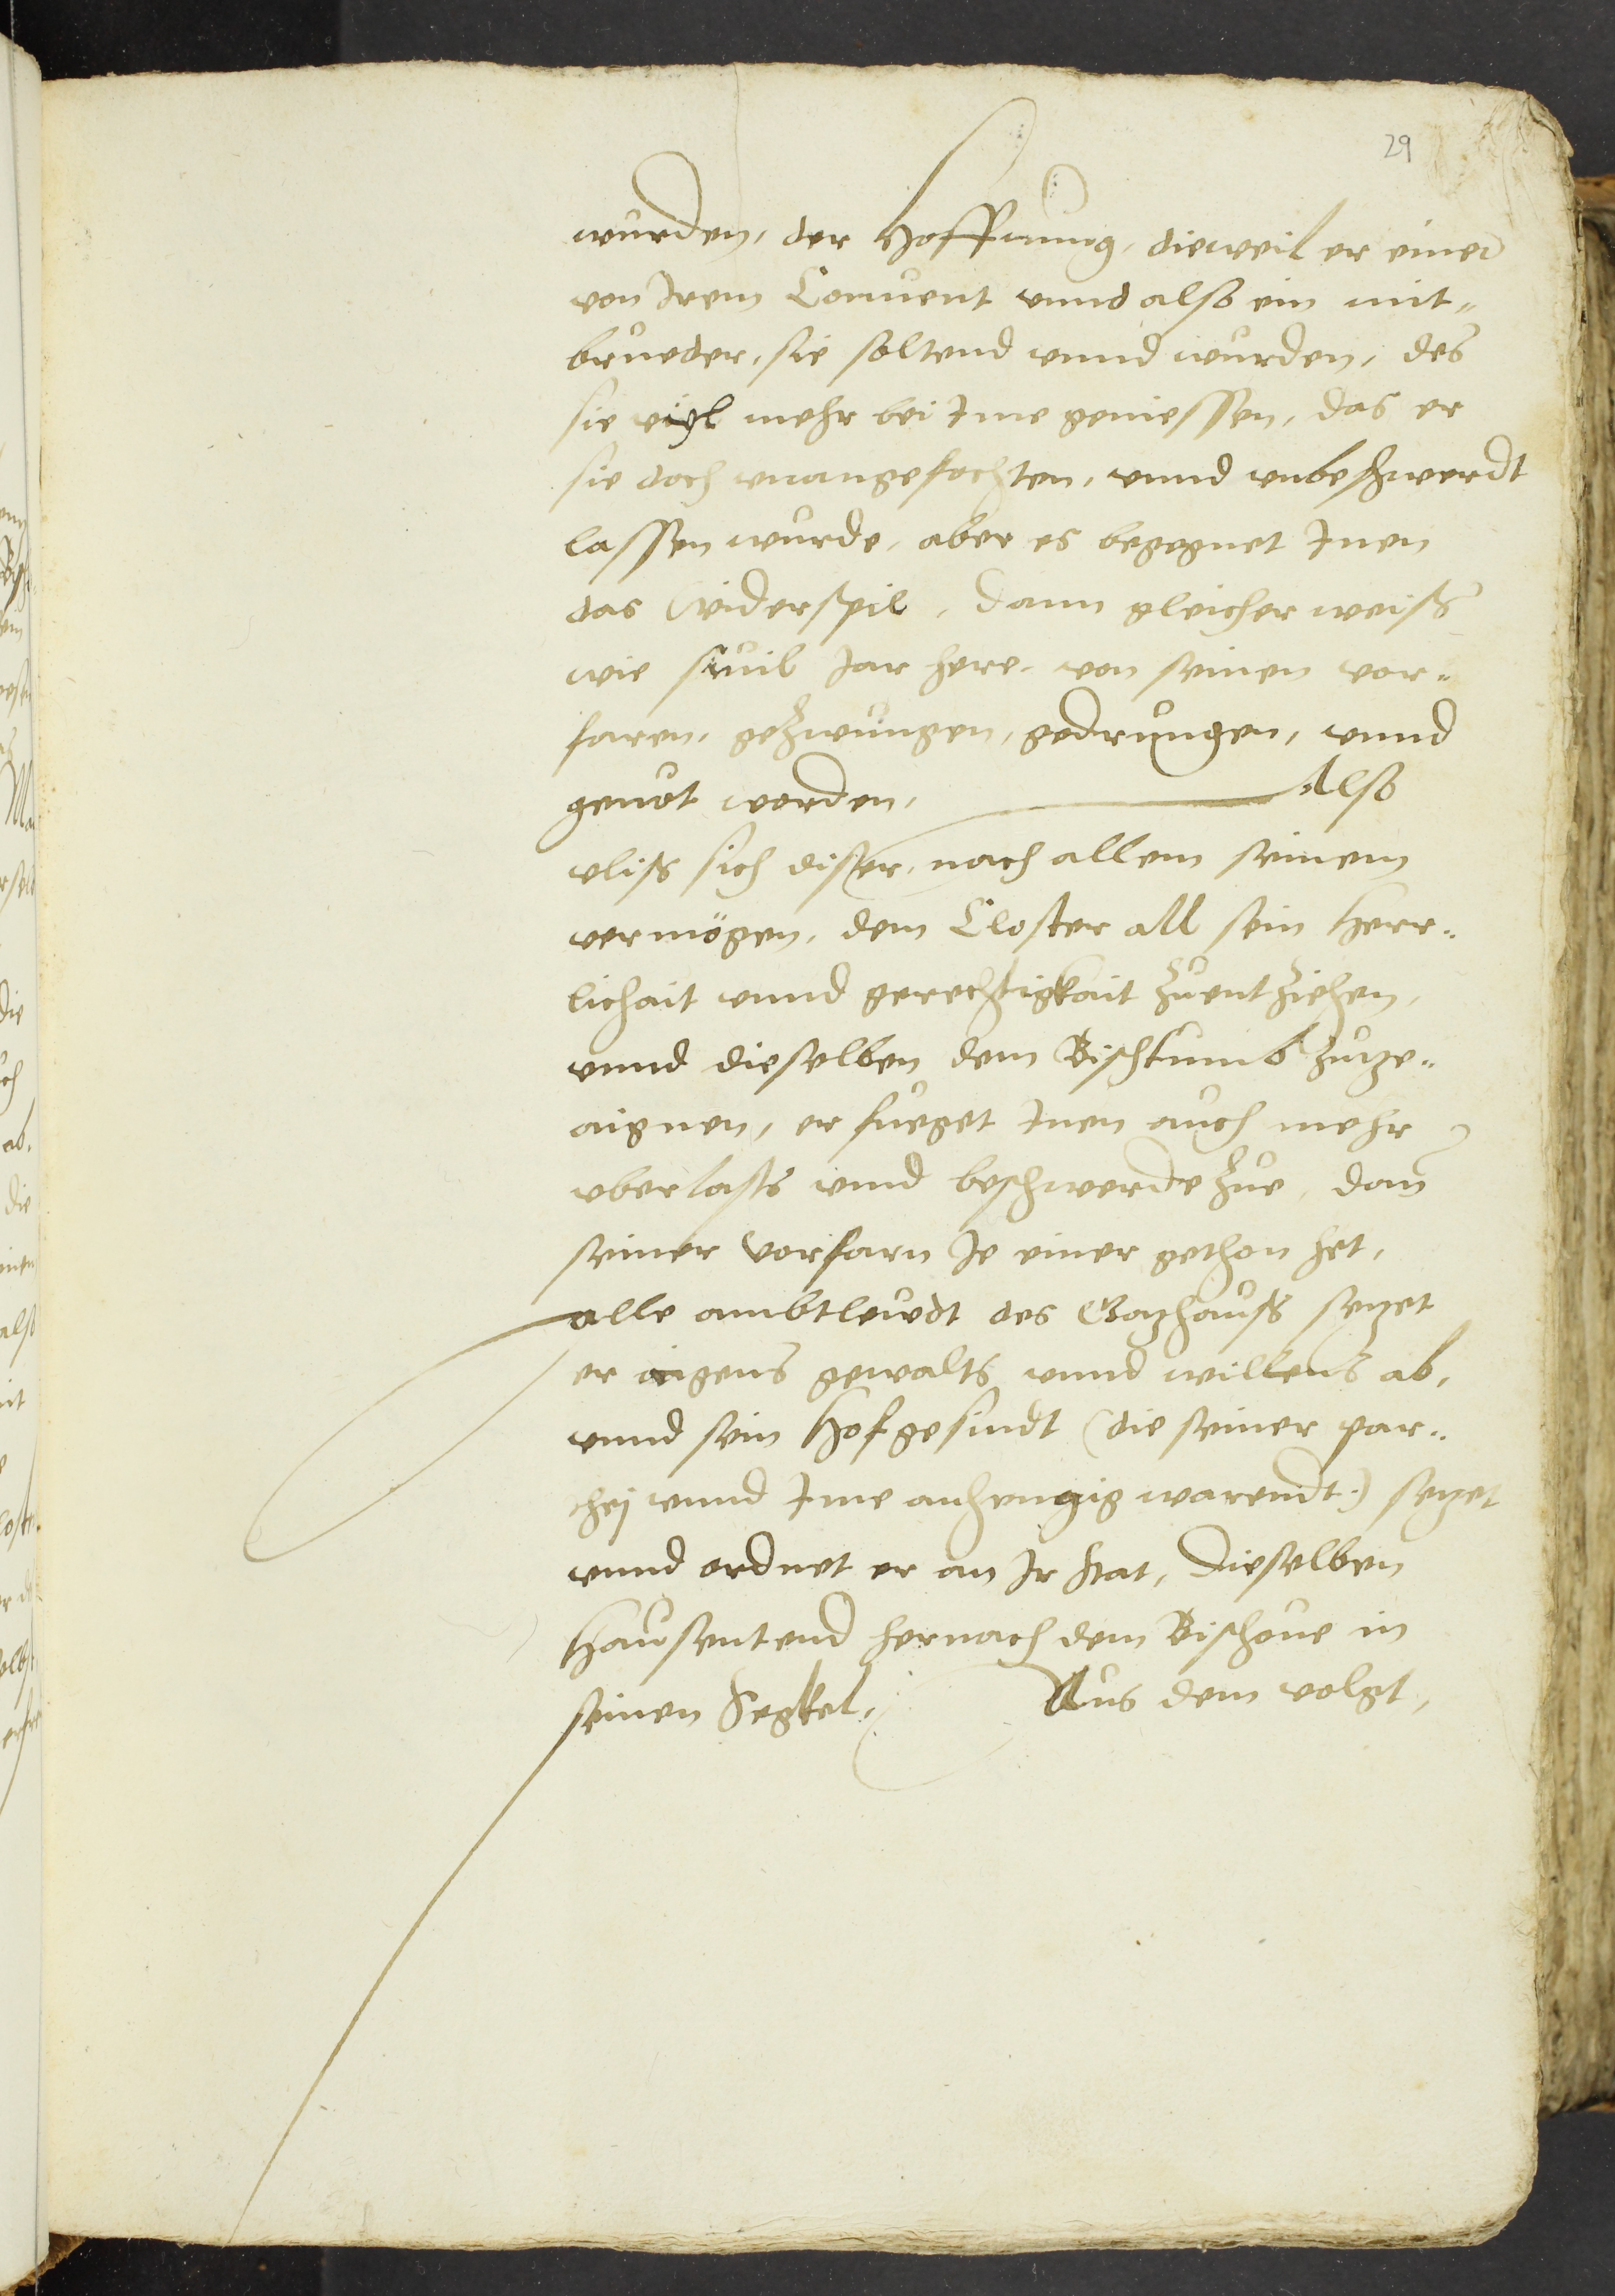 29
wurden, der Hoffnung, dieweil er einer
von Jrem Conuent vnnd also ein mit-
brueder, sie soltend vnnd wurden, des
sie vyl mehr bei Jme geniessen, das er
sie doch vnangefochten, vnnd vnbeschwerdt
lassen wurde, aber es begegnet Jnen
das widerspil, dann gleicher weiss
wie sṽuil Jar here, von seinen vor-
faren, gezwungen, gedrungen, vnnd
genöt worden, Also
vliss sich diser, nach allem seinem
vermögen, dem Closter all sein Herr-
lichait vnnd gerechtigkait zuentziehen,
vnnd dieselben dem Bischtumb zuze-
aignen, er fueget Jnen auch mehr
vberlasts vnnd beschwerde zue, dañ
seiner Vorfarn Je einer gethon het,
alle ambtleudt des Gozhauss sezet
er aigens gewalts vnnd willens ab,
vnnd sein Hofgesindt (die seiner par-
thej vnnd Jme anhengig warendt) sezet
vnnd ordnet er an Jr stat, Dieselben
Hausentend hernach dem Bischoue in
seinen Segkel, Aus dem volgt,